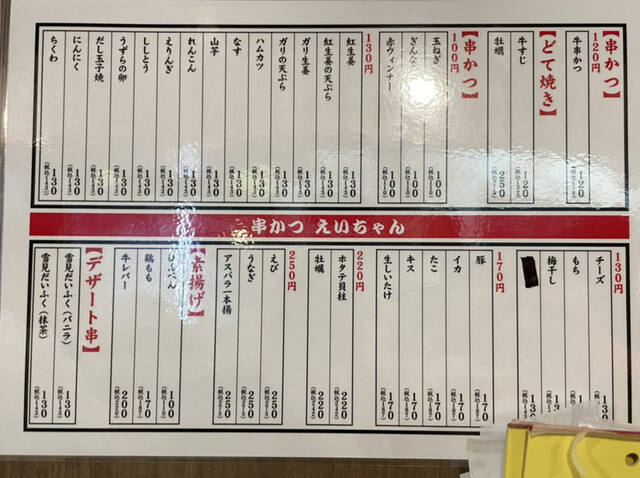 【串かつ】
120円
牛串かつ 120
【どて焼き】
牛すじ 120 (税込132)
牡蠣 250
【串かつ】
100円
玉ねぎ 100
ぎんなん 100
赤ウィンナー 100
130円
紅生姜 130 (税込143)
紅生姜の天ぷら 130 (税込143)
ガリ生姜 130 (税込143)
ガリの天ぷら 130 (税込143)
ハムカツ 130 (税込143)
なす 130 (税込143)
山芋 130 (税込143)
れんこん 130 (税込143)
えりんぎ 130 (税込143)
ししとう 130 (税込143)
うずらの卵 130 (税込143)
だし玉子焼 130 (税込143)
にんにく 130 (税込143)
ちくわ 130 (税込143)
串かつ えいちゃん
130円
チーズ
もち
梅干し
170円
豚 170 (税込187)
イカ 170 (税込187)
たこ 170 (税込187)
キス 170 (税込187)
生しいたけ 170 (税込187)
220円
ホタテ貝柱 220 (税込242)
牡蠣 220 (税込242)
250円
えび 250 (税込275)
うなぎ 250 (税込275)
アスパラ一本揚 250 (税込275)
【素揚げ】
はんぺん 100
鶏もも 170 (税込187)
牛レバー 200 (税込220)
【デザート串】
雪見だいふく(バニラ) 130 (税込143)
雪見だいふく(抹茶) 130 (税込143)